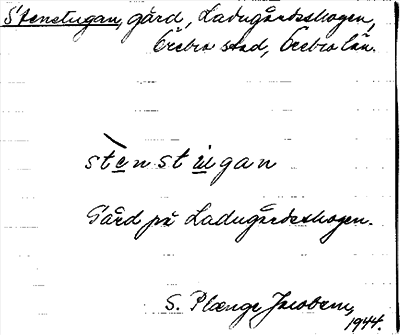 Stenstugan, gård, Ladugårdsskogen,
Örebro stad, Örebro län.
stènstugan
Gård på Ladugårdsskogen.
S. Plænge Jacobson,
1944.